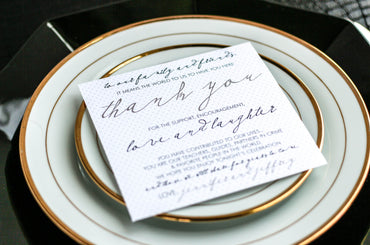 to our family and friends
IT MEANS THE WORLD TO US TO HAVE YOU HERE
thank you
FOR THE SUPPORT, ENCOURAGEMENT,
love and laughter
YOU HAVE CONTRIBUTED TO OUR LIVES.
YOU ARE OUR TEACHERS, GUIDES, PARTNERS IN CRIME
& FAVORITE PEOPLE IN THE WORLD.
WE HOPE YOU ENJOY TONIGHT'S CELEBRATION
LOVE, jennifer and jeffrey